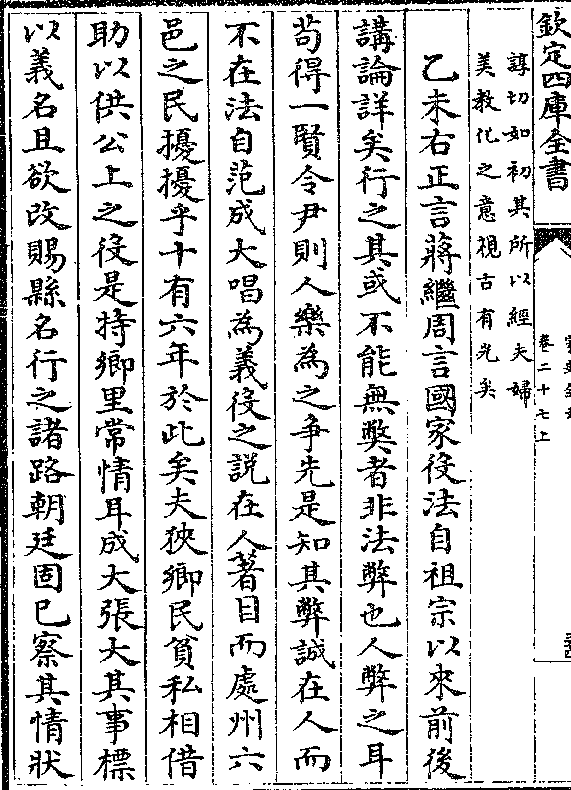 欽定四庫全書
卷二十七上
諄切如初其所以經夫婦
美教化之意視古有光矣
乙未右正言蔣繼周言國家役法自祖宗以來前後
講論詳矣行之其或不能無獘者非法弊也人弊之耳
茍得一賢令尹則人樂為之争先是知其弊誠在人而
不在法自范成大唱為義役之説在人著目而處州六
邑之民擾擾乎十有六年於此矣夫狹鄉民貧私相借
助以供公上之役是特鄉里常情耳成大張大其事標
以義名且欲改賜縣名行之諸路朝廷固已察其情狀